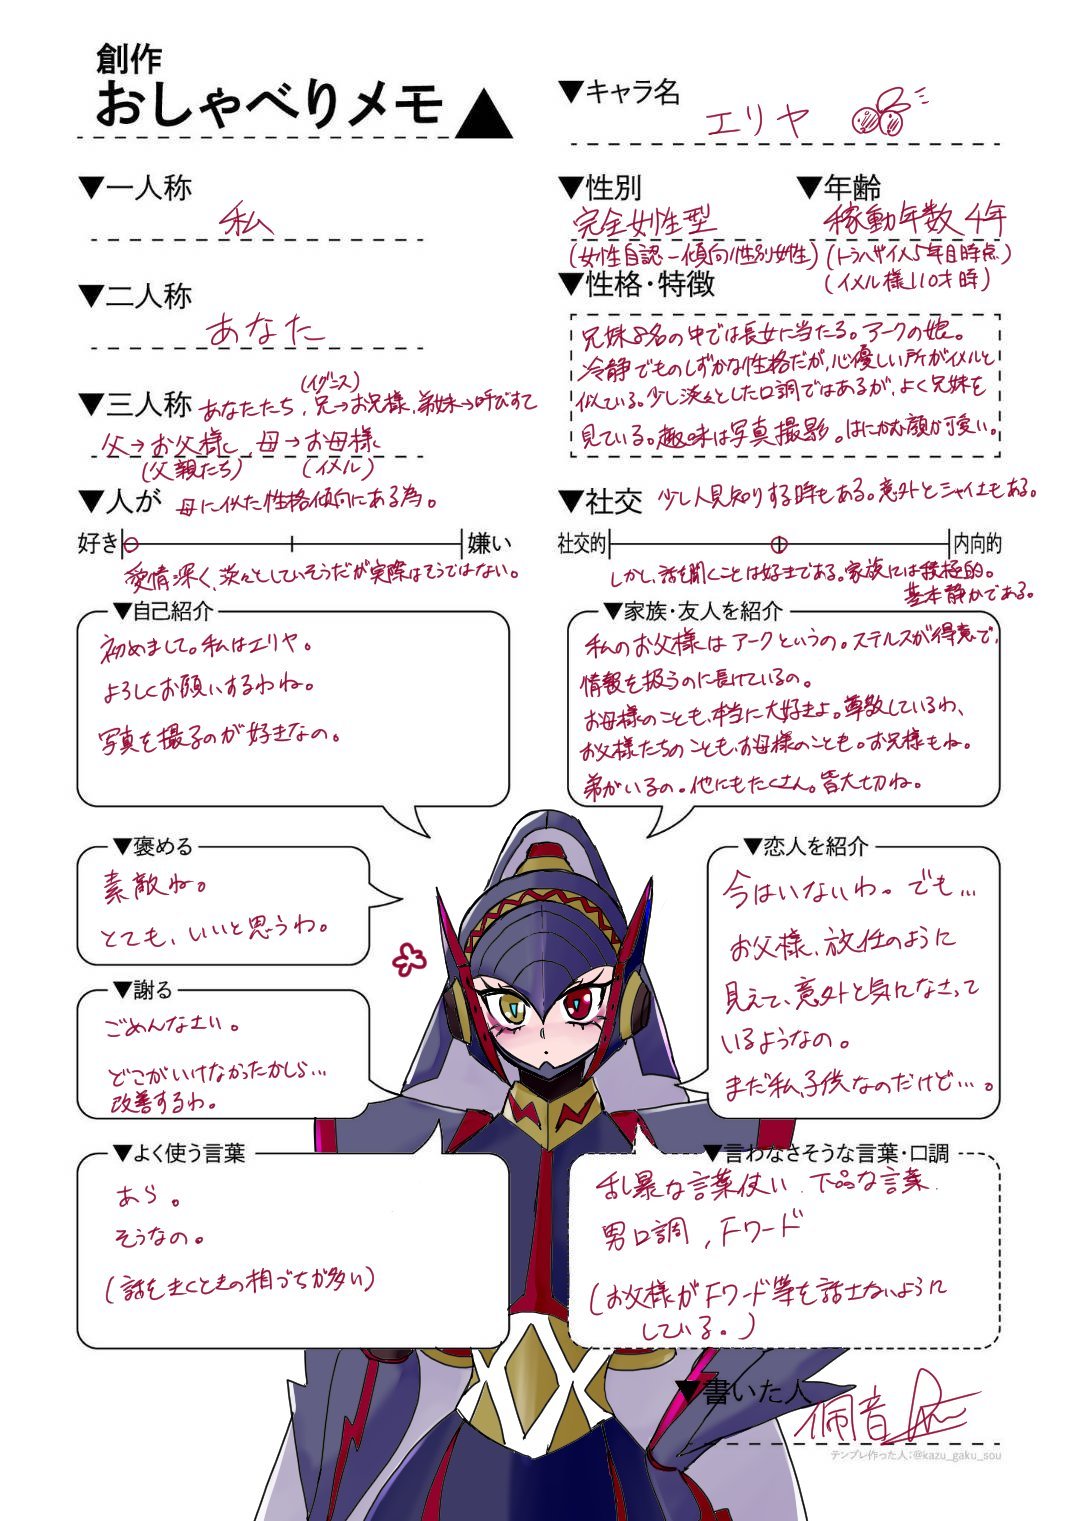 創作
おしゃべりメモ
▼キャラ名
エリヤ
▼一人称
私
▼性別
完全女性型
(女性自認-傾向性別女性)
▼年齢
稼動年数 4年
(トラハサイメ5年目時点)
(イメル様110才時)
▼二人称
あなた
▼性格・特徴
兄妹8名の中では長女に当たる。アークの娘。
冷静でものしずかな性格だが、心優しい所がイメルと
似ている。少し淡々とした口調ではあるが、よく兄妹を
見ている。趣味は写真撮影。はにかむ顔が可愛い。
▼三人称
あなたたち、兄→お兄様、弟妹→呼びすて
(イグニス)
父→お父様、母→お母様
(父親たち)
(イメル)
▼人が
母に似た性格傾向にある為。
好き
嫌い
愛情深く、淡々としていそうだが実際はそうではない。
▼社交
少し人見知りする時もある。意外とシャイさもある。
社交的
内向的
しかし、話を聞くことは好きである。家族には積極的。
基本静かである。
▼自己紹介
初めまして。私はエリヤ。
よろしくお願いするわね。
写真を撮るのが好きなの。
▼家族・友人を紹介
私のお父様はアークというの。ステルスが得意で、
情報を扱うのに長けているの。
お母様のことも、本当に大好きよ。尊敬しているわ、
お父様たちのことも、お母様のことも。お兄様もね。
弟がいるの。他にもたくさん。皆大切ね。
▼褒める
素敵ね。
とても、いいと思うわ。
▼謝る
ごめんなさい。
どこがいけなかったかしら…
改善するわ。
▼恋人を紹介
今はいないわ。でも…
お父様、放任のように
見えて、意外と気になさって
いるようなの。
まだ私、子供なのだけど…。
▼よく使う言葉
あら。
そうなの。
(話をきくときの相づちが多い)
▼言わなさそうな言葉・口調
乱暴な言葉使い、下品な言葉
男口調、Fワード
(お父様がFワード等を話さないように
している。)
▼書いた人
佩音
テンプレ作った人:@kazu_gaku_sou